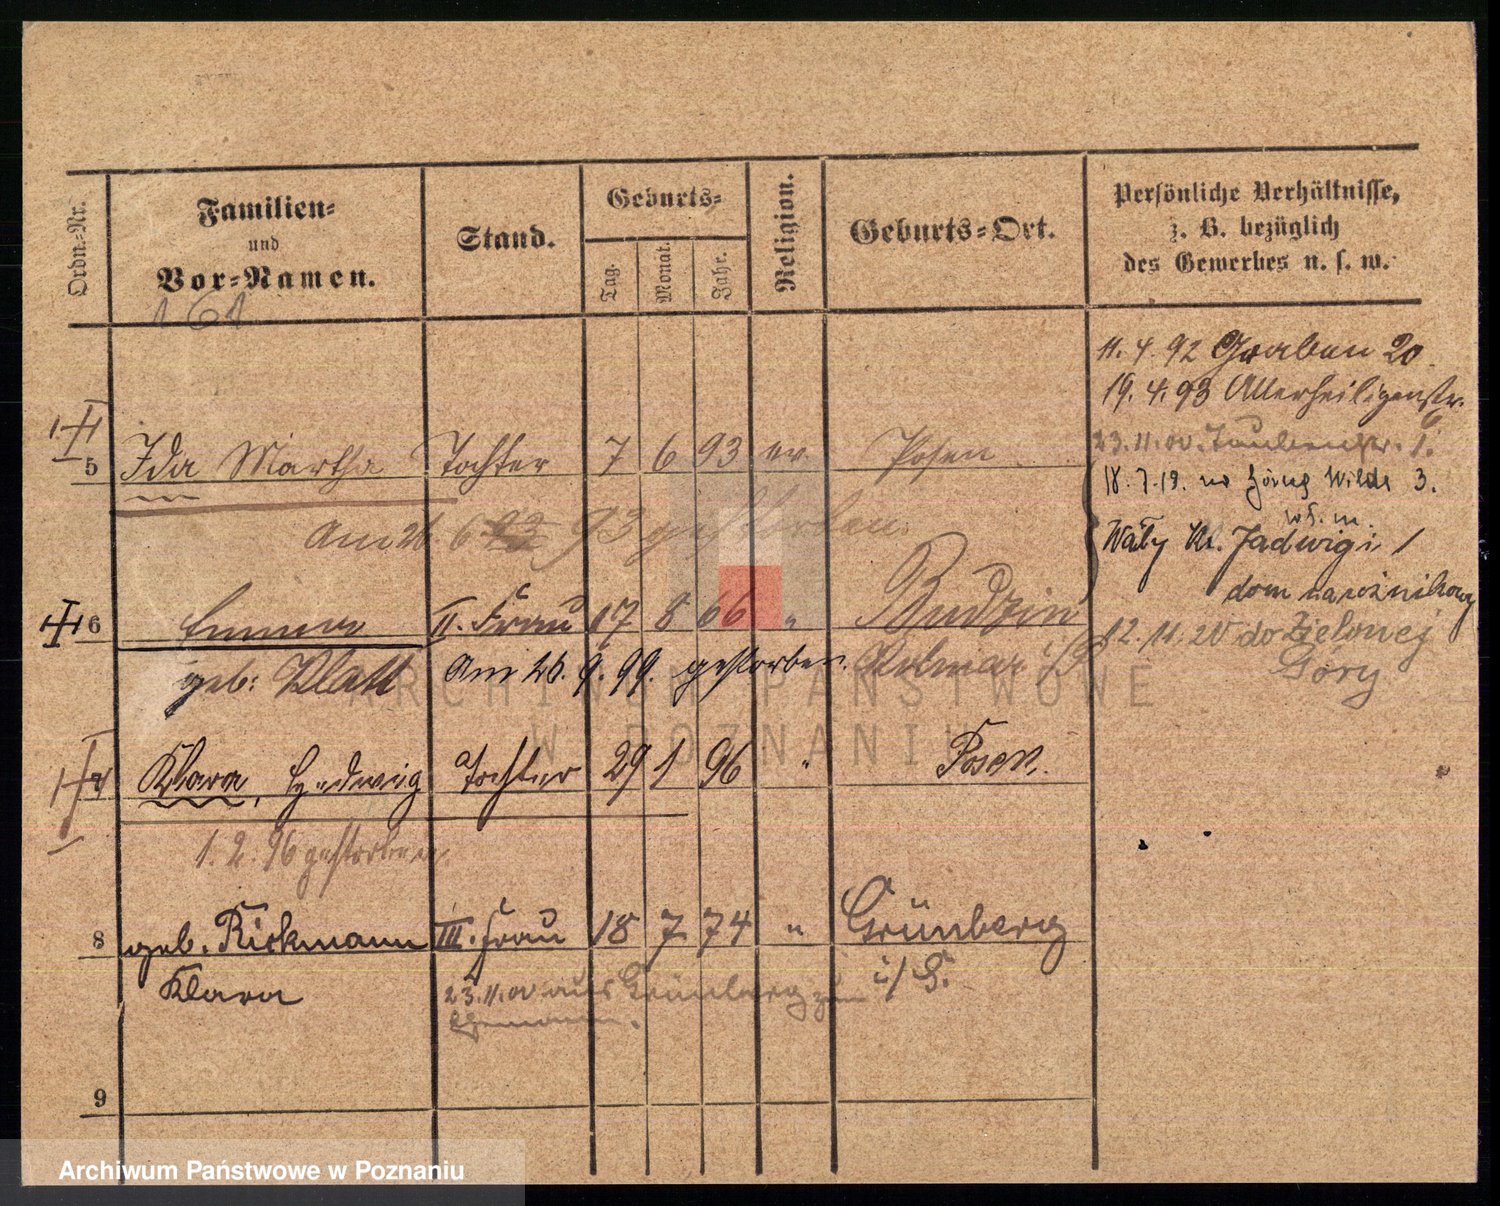 Ordn.-Nr.
Familien-
und
Vor-Namen.
Stand.
Geburts-
Tag.
Monat.
Jahr.
Religion.
Geburts-Ort.
Persönliche Verhältnisse,
z. B. bezüglich
des Gewerbes u. s. w.
161
11. 4. 92 Graben 20
19. 4. 93 Allerheiligenstr. 6
23. 11. 00. Taubenstr. 1.
18. 7. 19. Wilda 3.
Wały Kr. Jadwigi 1
dom narożnikowy
12. 11. 20 do Zielonej
Góry
5 Ida Martha Tochter 7 6 93 ev. Posen
Am 26. 6 93 gestorben.
6 Emma II. Frau 17 8 66 " Budzin
geb: Klatt Am 26. 9. 99. gestorben. Kolmar i/P
7 Klara, Hedwig Tochter 29 1 96 " Posen.
1. 2. 96 gestorben
8 geb. Rickmann III. Frau 18 7 74 " Grünberg
Klara i/S.
23. 11. 00 aus Grünberg zum
Ehemann.
9
ARCHIWUM PAŃSTWOWE
W POZNANIU
Archiwum Państwowe w Poznaniu